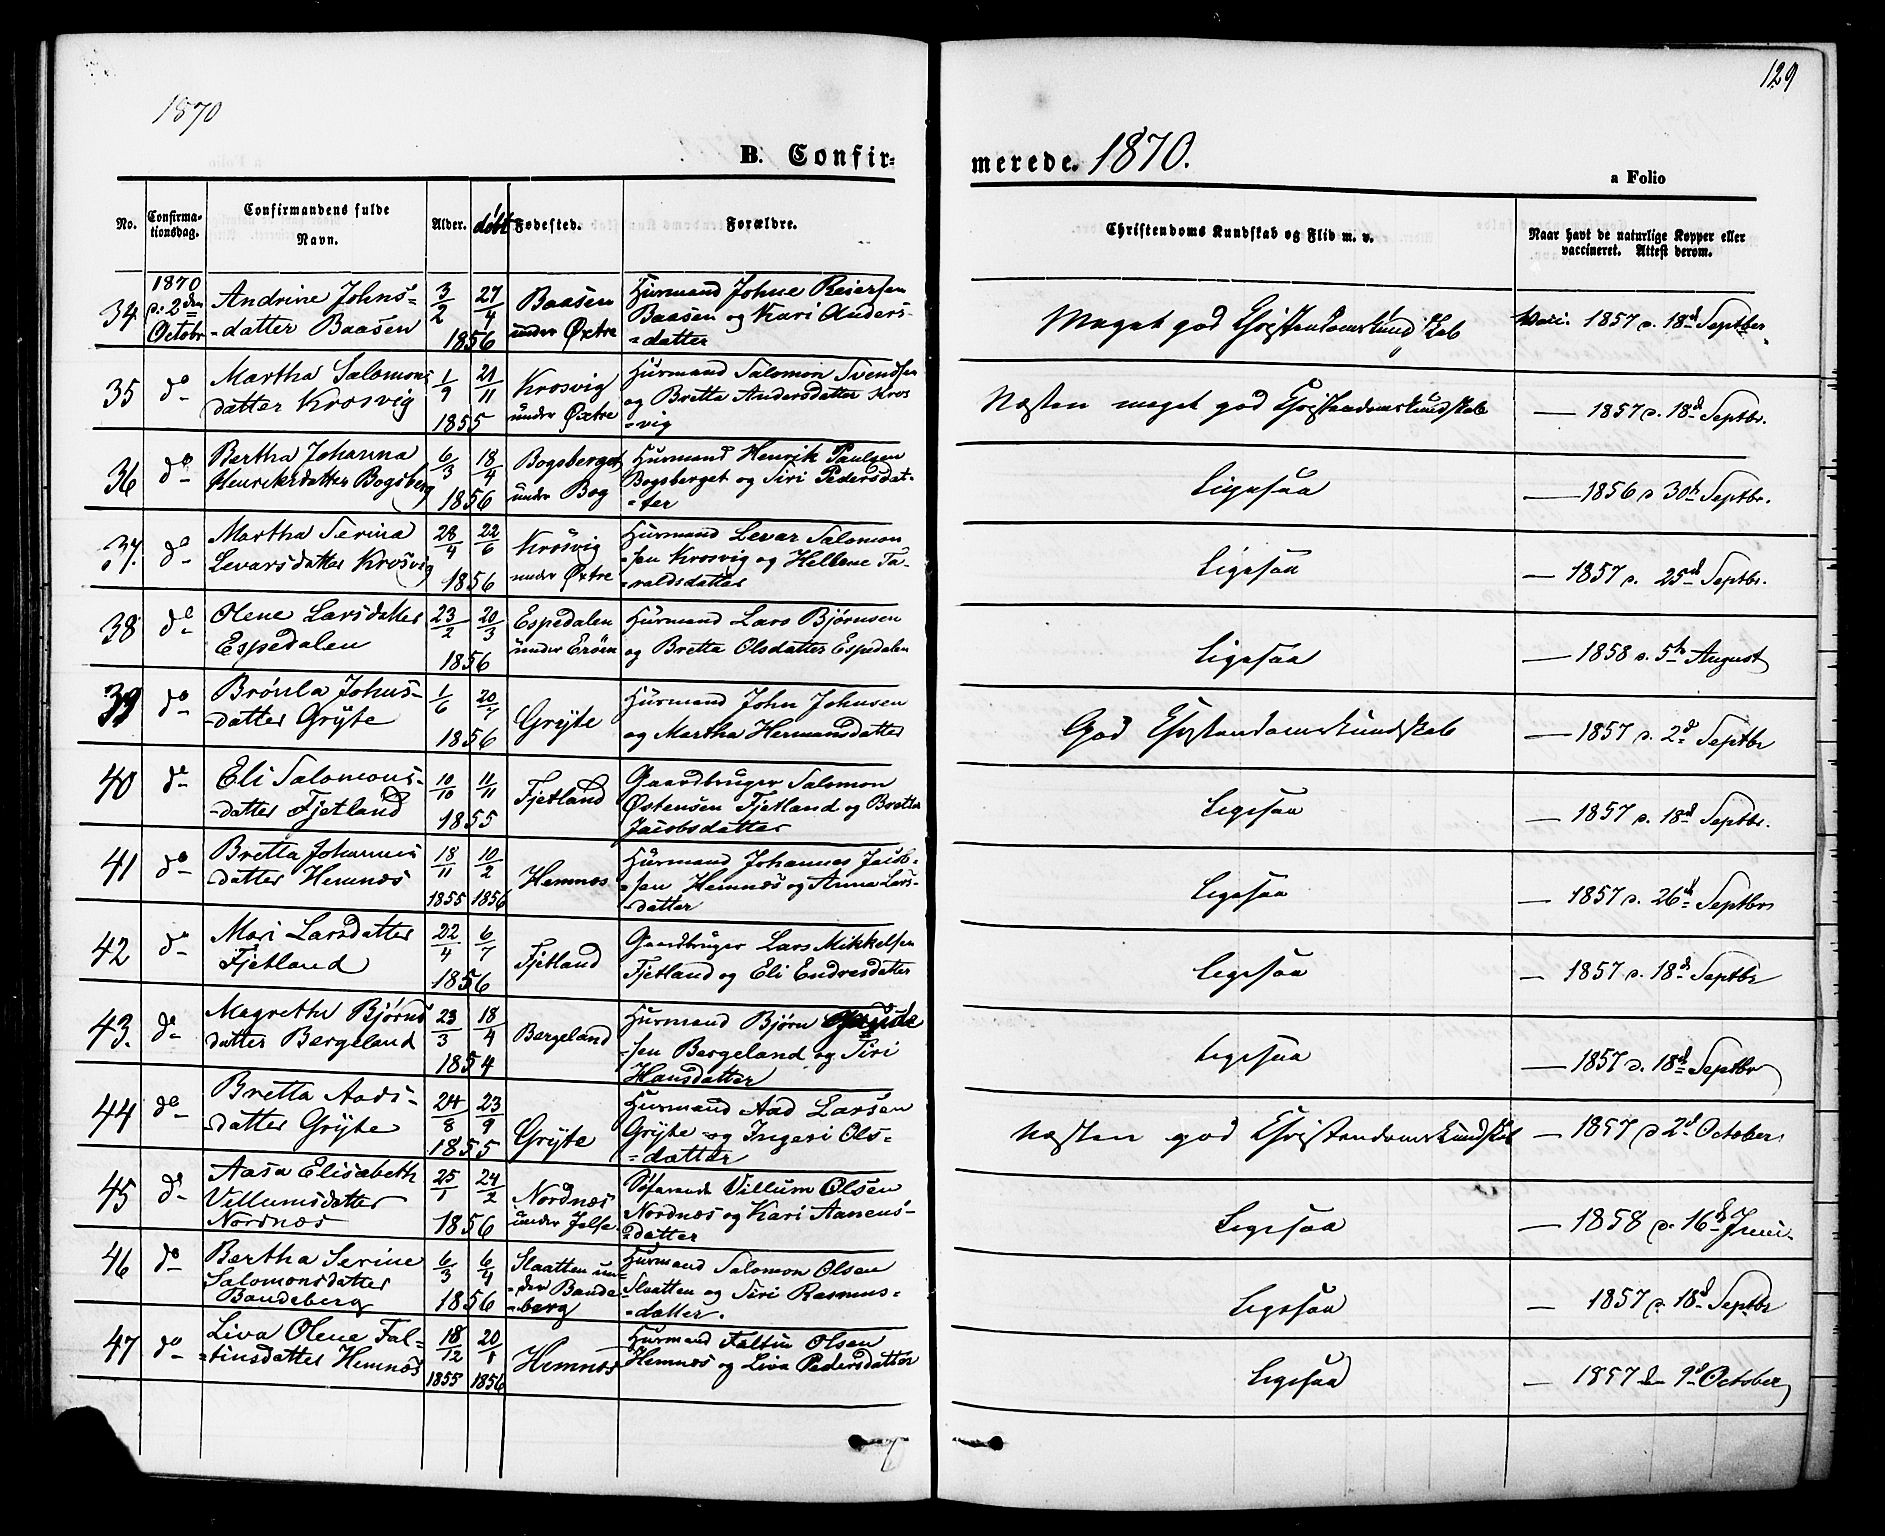 129
1870
B. Confir-
merede. 1870.
a Folio
No.
Confirma-
tionsdag.
Confirmandens fulde
Navn.
Alder.
døbt
Fødested.
Forældre.
Christendoms Kundskab og Flid m. v.
Naar havt de naturlige Kopper eller
vaccineret. Attest derom.
34 1870 d. 2den Octobr Andrine Johns- -datter Baasen 3/2 27/4 1856 Baasen under Øxtre Huusmand Johne Reiersen Baasen og Kari Anders- -datter Meget god Christendomskundskab Vacc. 1857 d. 18d Septber
35 do Martha Salomons datter Krosvig 1/9 21/11 1855 Krosvig under Øxtre Huusmand Salomon Svendsen og Bretta Andersdatter Kros -vig Næsten meget god Christendomskundskab — 1857 d. 18d Septbr.
36 do Bertha Johanna Henriksdatter Bogsberg 6/3 18/4 1856 Bogsberget under Bog Huusmand Henrik Paulsen Bogsberget og Siri Pedersdat- -ter Ligesaa — 1856 d 30te Septbr.
37. do Martha Serina Levarsdatter Krosvig 28/4 22/6 1856 Krosvig under Øxtre Huusmand Levar Salomon -sen Krosvig og Hellene Ta- -raldsdatter Ligesaa — 1857 d. 25d Septbr.
38 do Olene Larsdatter Espedalen 23/2 20/3 1856 Espedalen under Huusmand Lars Bjørnsen og Bretta Olsdatter Espedalen Ligesaa — 1858 d. 5te August
39 do Brønla Johns- -datter Grÿte 1/6 20/7 1856 Grÿte Huusmand John Johnsen og Martha Hermansdatter God Christendomskundskab — 1857 d. 2d Septbr
40 do Eli Salomons- -datter Fjetland 10/10 11/11 1855 Fjetland Gaardbruger Salomon Østensen Fjetland og Bretta Jacobsdatter Ligesaa — 1857 d. 18d Septbr.
41 do Bretta Johannes datter Hemnæs 18/11 1855 10/2 1856 Hemnæs Huusmand Johannes Jacob- -sen Hemnæs og Anna Lars- -datter Ligesaa — 1857 d. 26d Septbr
42 do Mari Larsdatter Fjetland 22/4 6/7 1856 Fjetland Gaardbruger Lars Mikkelsen Fjetland og Eli Endresdatter Ligesaa — 1857 d. 18d Septbr
43. do Magrethe Bjørns datter Bergeland 23/3 18/4 1854 Bergeland Huusmand Bjørn -sen Bergeland og Siri Hansdatter Ligesaa — 1857 d. 18d Septbr
44 do Bretta Aads- datter Grÿte 24/8 23/9 1855 Grÿte Huusmand Aad Larsen Grÿte og Ingeri Ols- -datter Næsten god Christendomskundskab — 1857 d 2d October
45 do Aasa Elisabeth Villumsdatter Nordnæs 25/1 24/2 1856 Nordnæs under Jelse Søfarende Villum Olsen Nordnæs og Kari Aanens- -datter Ligesaa — 1858 d. 16d Juni
46 do Bertha Serine Salomonsdatter Bandeberg 6/3 6/4 1856 Slaatten un- -der Bande- -berg Huusmand Salomon Olsen Slaatten og Siri Rasmus- -datter. Ligesaa — 1857 d. 18d Septbr
47 do Liva Olene Fal- -tinsdatter Hemnæs 18/12 1855 20/1 1856 Hemnæs Huusmand Faltin Olsen Hemnæs og Liva Pedersdatter Ligesaa — 1857 den 9d October